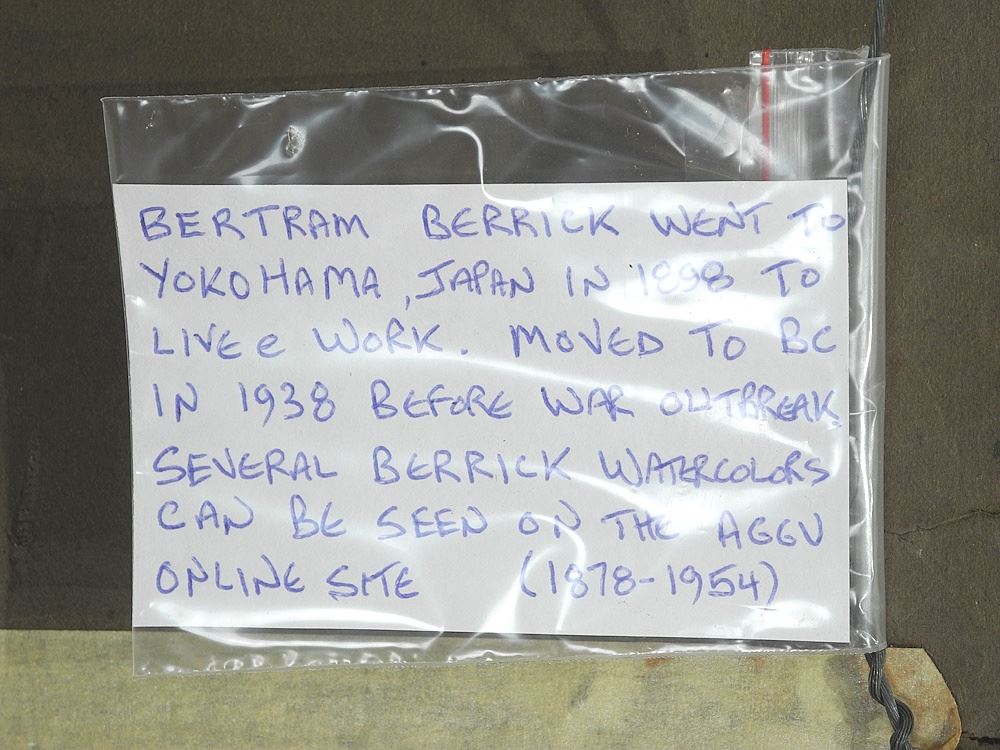 BERTRAM BERRICK WENT TO
YOKOHAMA, JAPAN IN 1898 TO
LIVE e WORK. MOVED TO BC
IN 1938 BEFORE WAR OUTBREAK.
SEVERAL BERRICK WATERCOLORS
CAN BE SEEN ON THE AGGV
ONLINE SITE (1878-1954)